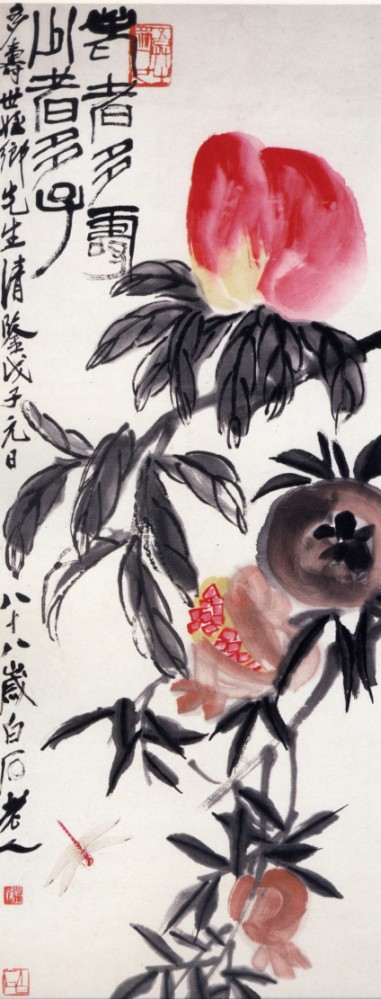 老者多壽
少者多子
多壽世鄉先生清鑒戊子元日
八十八歲白石老人